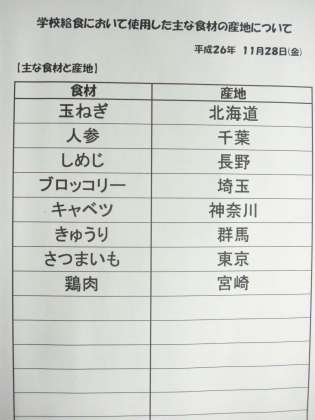 学校給食において使用した主な食材の産地について
平成26年 11月28日(金)
【主な食材と産地】
食材 産地
玉ねぎ 北海道
人参 千葉
しめじ 長野
ブロッコリー 埼玉
キャベツ 神奈川
きゅうり 群馬
さつまいも 東京
鶏肉 宮崎